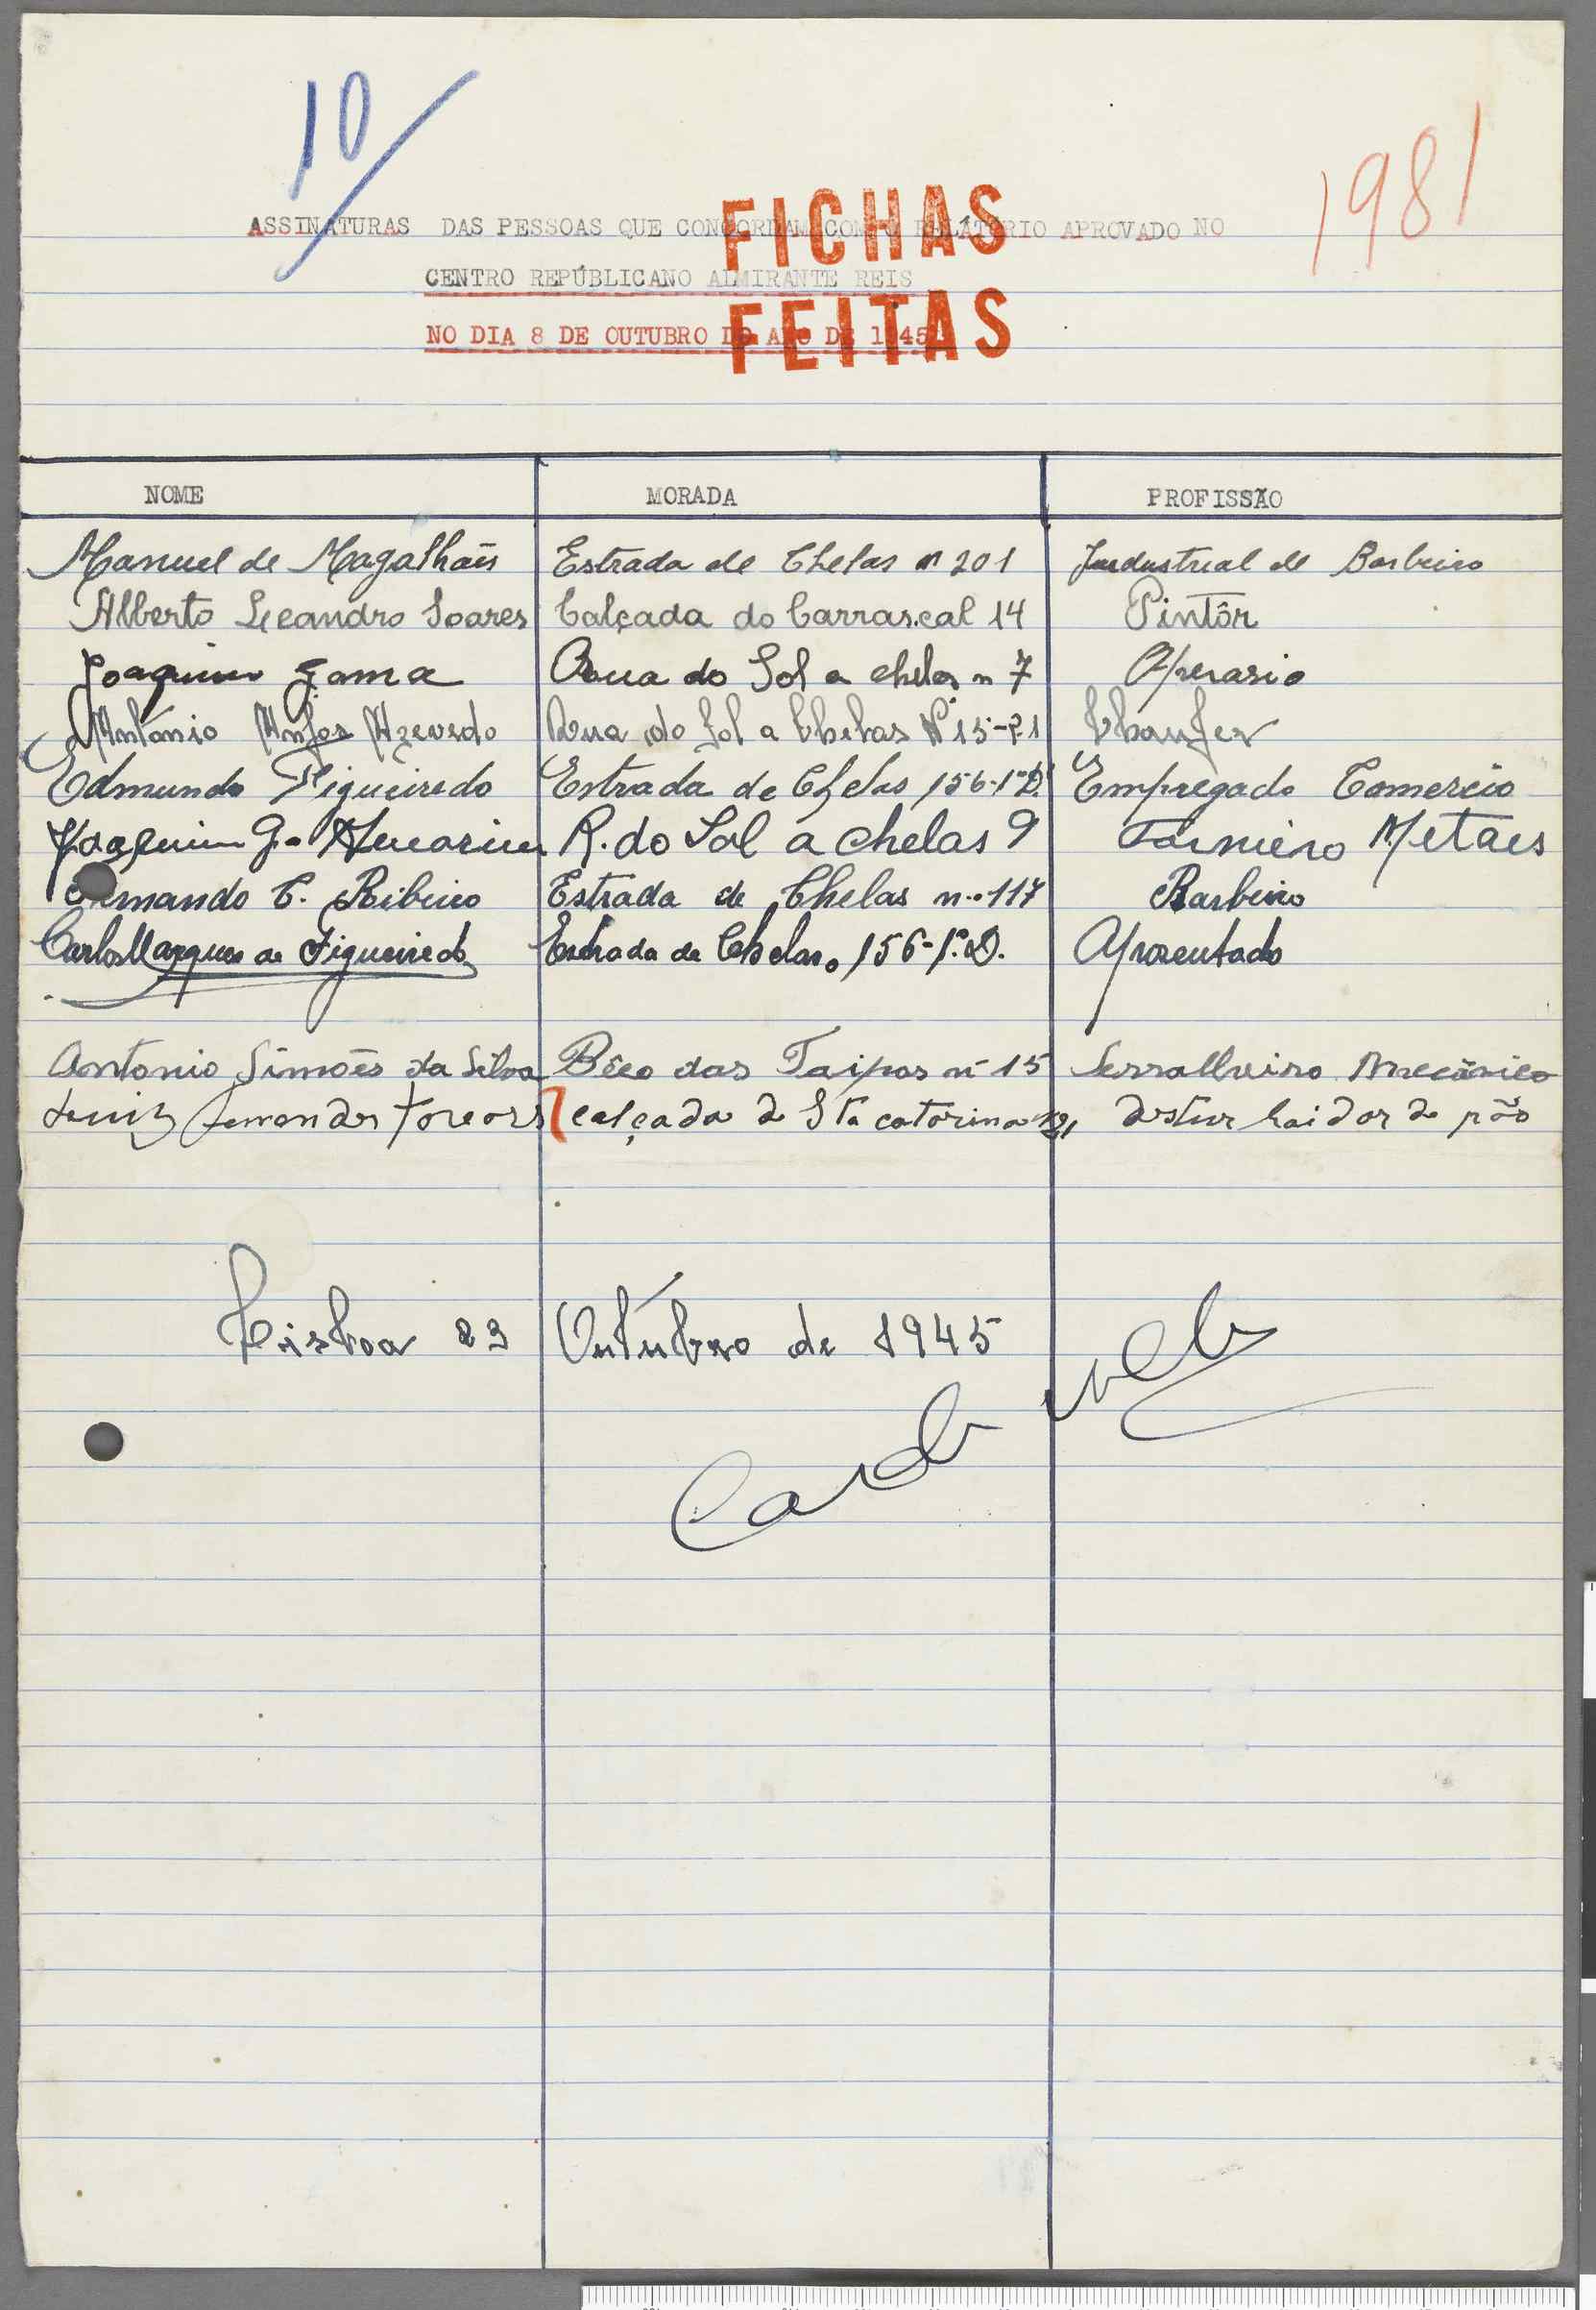 10/
1981
FICHAS
FEITAS
ASSINATURAS DAS PESSOAS QUE CONCORDAM COM O RELATÓRIO APROVADO NO
CENTRO REPÚBLICANO ALMIRANTE REIS
NO DIA 8 DE OUTUBRO DO ANO DE 1945
NOME MORADA PROFISSÃO
Manuel de Magalhães Estrada de Chelas nº 201 Industrial de Barbeiro
Alberto Leandro Soares Calçada do Carrascal 14 Pintôr
Joaquim Gama Rua do Sol a chelas n 7 Operario
António Anjos Azevedo Rua do Sol a Chelas Nº 15- Chaufer
Edmundo Figueiredo Estrada de Chelas 156-1º D. Empregado Comercio
Joaquim G. R. do Sol a chelas 9 Torneiro Metaes
Armando C. Ribeiro Estrada de Chelas n.º 117 Barbeiro
Carlos Marques de Figueiredo Estrada de Chelas, 156-1º D. Aposentado
Antonio Simões da Silva Bêco das Taipas nº 15 Serralheiro Mecânico
Luiz Fernandes calçada de Sta catarina de pão
Lisboa 23 Outúbro de 1945